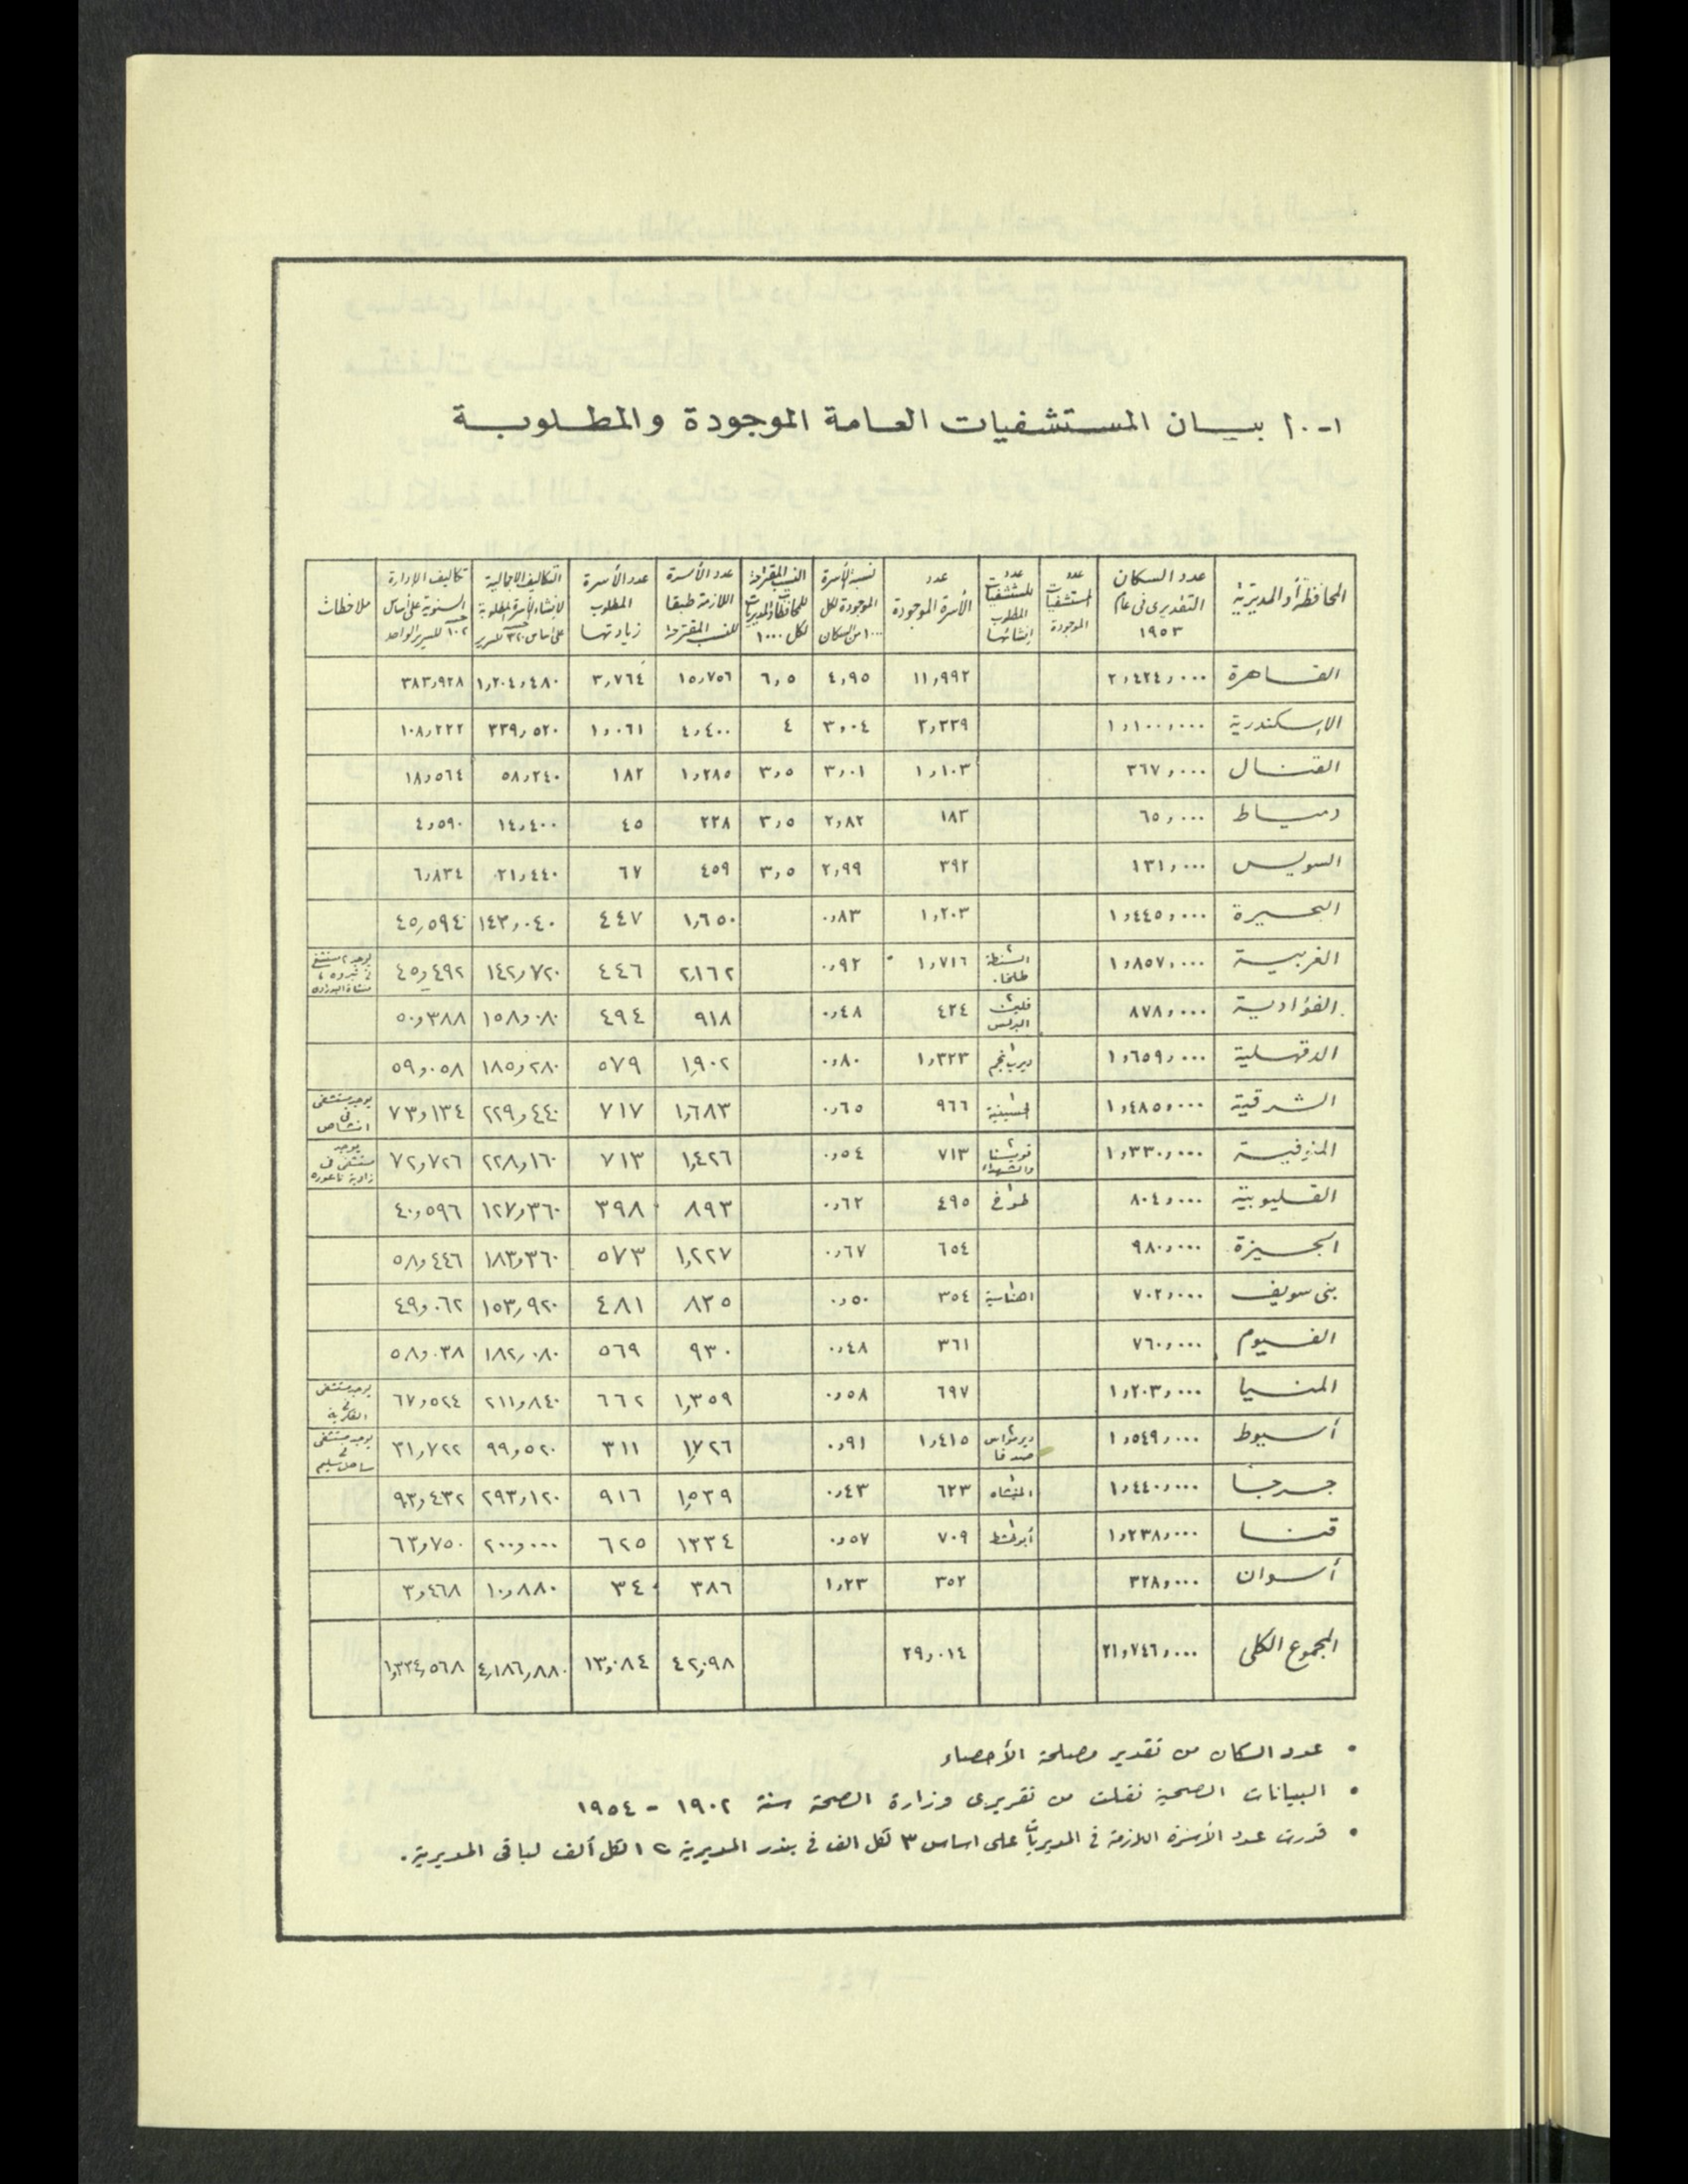 ١-١٠ بيـــان المستشفيات العـامة الموجودة والمطلوبـــة
المحافظة أو المديرية | عدد السكان التقديرى فى عام ١٩٥٣ | عدد المستشفيات الموجودة | عدد المستشفيات المطلوب إنشائها | عدد الأسرة الموجودة | نسبة الأسرة الموجودة لكل ١٠٠٠ من السكان | النسب المقترحة للمحافظات والمديريات لكل ١٠٠٠ | عدد الأسرة اللازمة طبقا للنسب المقترحة | عدد الأسرة المطلوب زيادتها | التكاليف الاجمالية لإنشاء الأسرة المطلوبة على أساس ٣٢٠ للسرير | تكاليف الإدارة السنوية على أساس ١٠٢ للسرير الواحد | ملاحظات
القـاهرة | ٢,٤٢٤,٠٠٠ | ١١,٩٩٢ | ٤,٩٥ | ٦,٥ | ١٥,٧٥٦ | ٣,٧٦٤ | ١,٢٠٤,٤٨٠ | ٣٨٣,٩٢٨
الإسكندرية | ١,١٠٠,٠٠٠ | ٣,٣٣٩ | ٣,٠٤ | ٤ | ٤,٤٠٠ | ١,٠٦١ | ٣٣٩,٥٢٠ | ١٠٨,٢٢٢
القنـال | ٣٦٧,٠٠٠ | ١,١٠٣ | ٣,٠١ | ٣,٥ | ١,٢٨٥ | ١٨٢ | ٥٨,٢٤٠ | ١٨,٥٦٤
دميــاط | ٦٥,٠٠٠ | ١٨٣ | ٢,٨٢ | ٣,٥ | ٢٢٨ | ٤٥ | ١٤,٤٠٠ | ٤,٥٩٠
السويس | ١٣١,٠٠٠ | ٣٩٢ | ٢,٩٩ | ٣,٥ | ٤٥٩ | ٦٧ | ٢١,٤٤٠ | ٦,٨٣٤
البحـيرة | ١,٤٤٥,٠٠٠ | ١,٢٠٣ | ٠,٨٣ | ١,٦٥٠ | ٤٤٧ | ١٤٣,٠٤٠ | ٤٥,٥٩٤
الغربيـــة | ١,٨٥٧,٠٠٠ | ٢ السنطة طلخا | ١,٧١٦ | ٠,٩٢ | ٢,١٦٢ | ٤٤٦ | ١٤٢,٧٢٠ | ٤٥,٤٩٢ | يوجد ٢ مستشفى فى
الفؤاديـــة | ٨٧٨,٠٠٠ | ٢ قلين البرلس | ٤٢٤ | ٠,٤٨ | ٩١٨ | ٤٩٤ | ١٥٨,٠٨٠ | ٥٠,٣٨٨
الدقهـلية | ١,٦٥٩,٠٠٠ | ١ ديرب نجم | ١,٣٢٣ | ٠,٨٠ | ١,٩٠٢ | ٥٧٩ | ١٨٥,٢٨٠ | ٥٩,٠٥٨
الشـرقية | ١,٤٨٥,٠٠٠ | ١ الحسينية | ٩٦٦ | ٠,٦٥ | ١,٦٨٣ | ٧١٧ | ٢٢٩,٤٤٠ | ٧٣,١٣٤ | يوجد مستشفى فى انشاص
المنوفيـــة | ١,٣٣٠,٠٠٠ | ٢ قويسنا والشهداء | ٧١٣ | ٠,٥٤ | ١,٤٢٦ | ٧١٣ | ٢٢٨,١٦٠ | ٧٢,٧٢٦ | يوجد مستشفى فى زاوية ناعورة
القـليوبية | ٨٠٤,٠٠٠ | ١ طوخ | ٤٩٥ | ٠,٦٢ | ٨٩٣ | ٣٩٨ | ١٢٧,٣٦٠ | ٤٠,٥٩٦
الجـيزة | ٩٨٠,٠٠٠ | ٦٥٤ | ٠,٦٧ | ١,٢٢٧ | ٥٧٣ | ١٨٣,٣٦٠ | ٥٨,٤٤٦
بنى سويف | ٧٠٢,٠٠٠ | ١ اهناسية | ٣٥٤ | ٠,٥٠ | ٨٣٥ | ٤٨١ | ١٥٣,٩٢٠ | ٤٩,٠٦٢
الفـيوم | ٧٦٠,٠٠٠ | ٣٦١ | ٠,٤٨ | ٩٣٠ | ٥٦٩ | ١٨٢,٠٨٠ | ٥٨,٠٣٨
المنـيا | ١,٢٠٣,٠٠٠ | ٦٩٧ | ٠,٥٨ | ١,٣٥٩ | ٦٦٢ | ٢١١,٨٤٠ | ٦٧,٥٢٤ | يوجد مستشفى فى الفكرية
أسيوط | ١,٥٤٩,٠٠٠ | ٢ ديرمواس صدفا | ١,٤١٥ | ٠,٩١ | ١,٧٢٦ | ٣١١ | ٩٩,٥٢٠ | ٣١,٧٢٢ | يوجد مستشفى فى ساحل سليم
جـرجـا | ١,٤٤٠,٠٠٠ | ١ المنشاه | ٦٢٣ | ٠,٤٣ | ١,٥٣٩ | ٩١٦ | ٢٩٣,١٢٠ | ٩٣,٤٣٢
قنـــا | ١,٢٣٨,٠٠٠ | ١ أبوطشط | ٧٠٩ | ٠,٥٧ | ١٣٣٤ | ٦٢٥ | ٢٠٠,٠٠٠ | ٦٣,٧٥٠
أسـوان | ٣٢٨,٠٠٠ | ٣٥٢ | ١,٢٣ | ٣٨٦ | ٣٤ | ١٠,٨٨٠ | ٣,٤٦٨
المجموع الكلى | ٢١,٧٤٦,٠٠٠ | ٢٩,٠١٤ | ٤٢,٠٩٨ | ١٣,٠٨٤ | ٤,١٨٦,٨٨٠ | ١,٣٣٤,٥٦٨
• عدد السكان من تقدير مصلحة الأحصاء
• البيانات الصحية نقلت من تقريرى وزارة الصحة سنة ١٩٠٢ - ١٩٥٤
• قدرت عدد الأسرة اللازمة فى المديريات على اساس ٣ لكل الف فى بندر المديرية ، ١ لكل ألف لباقى المديرية.